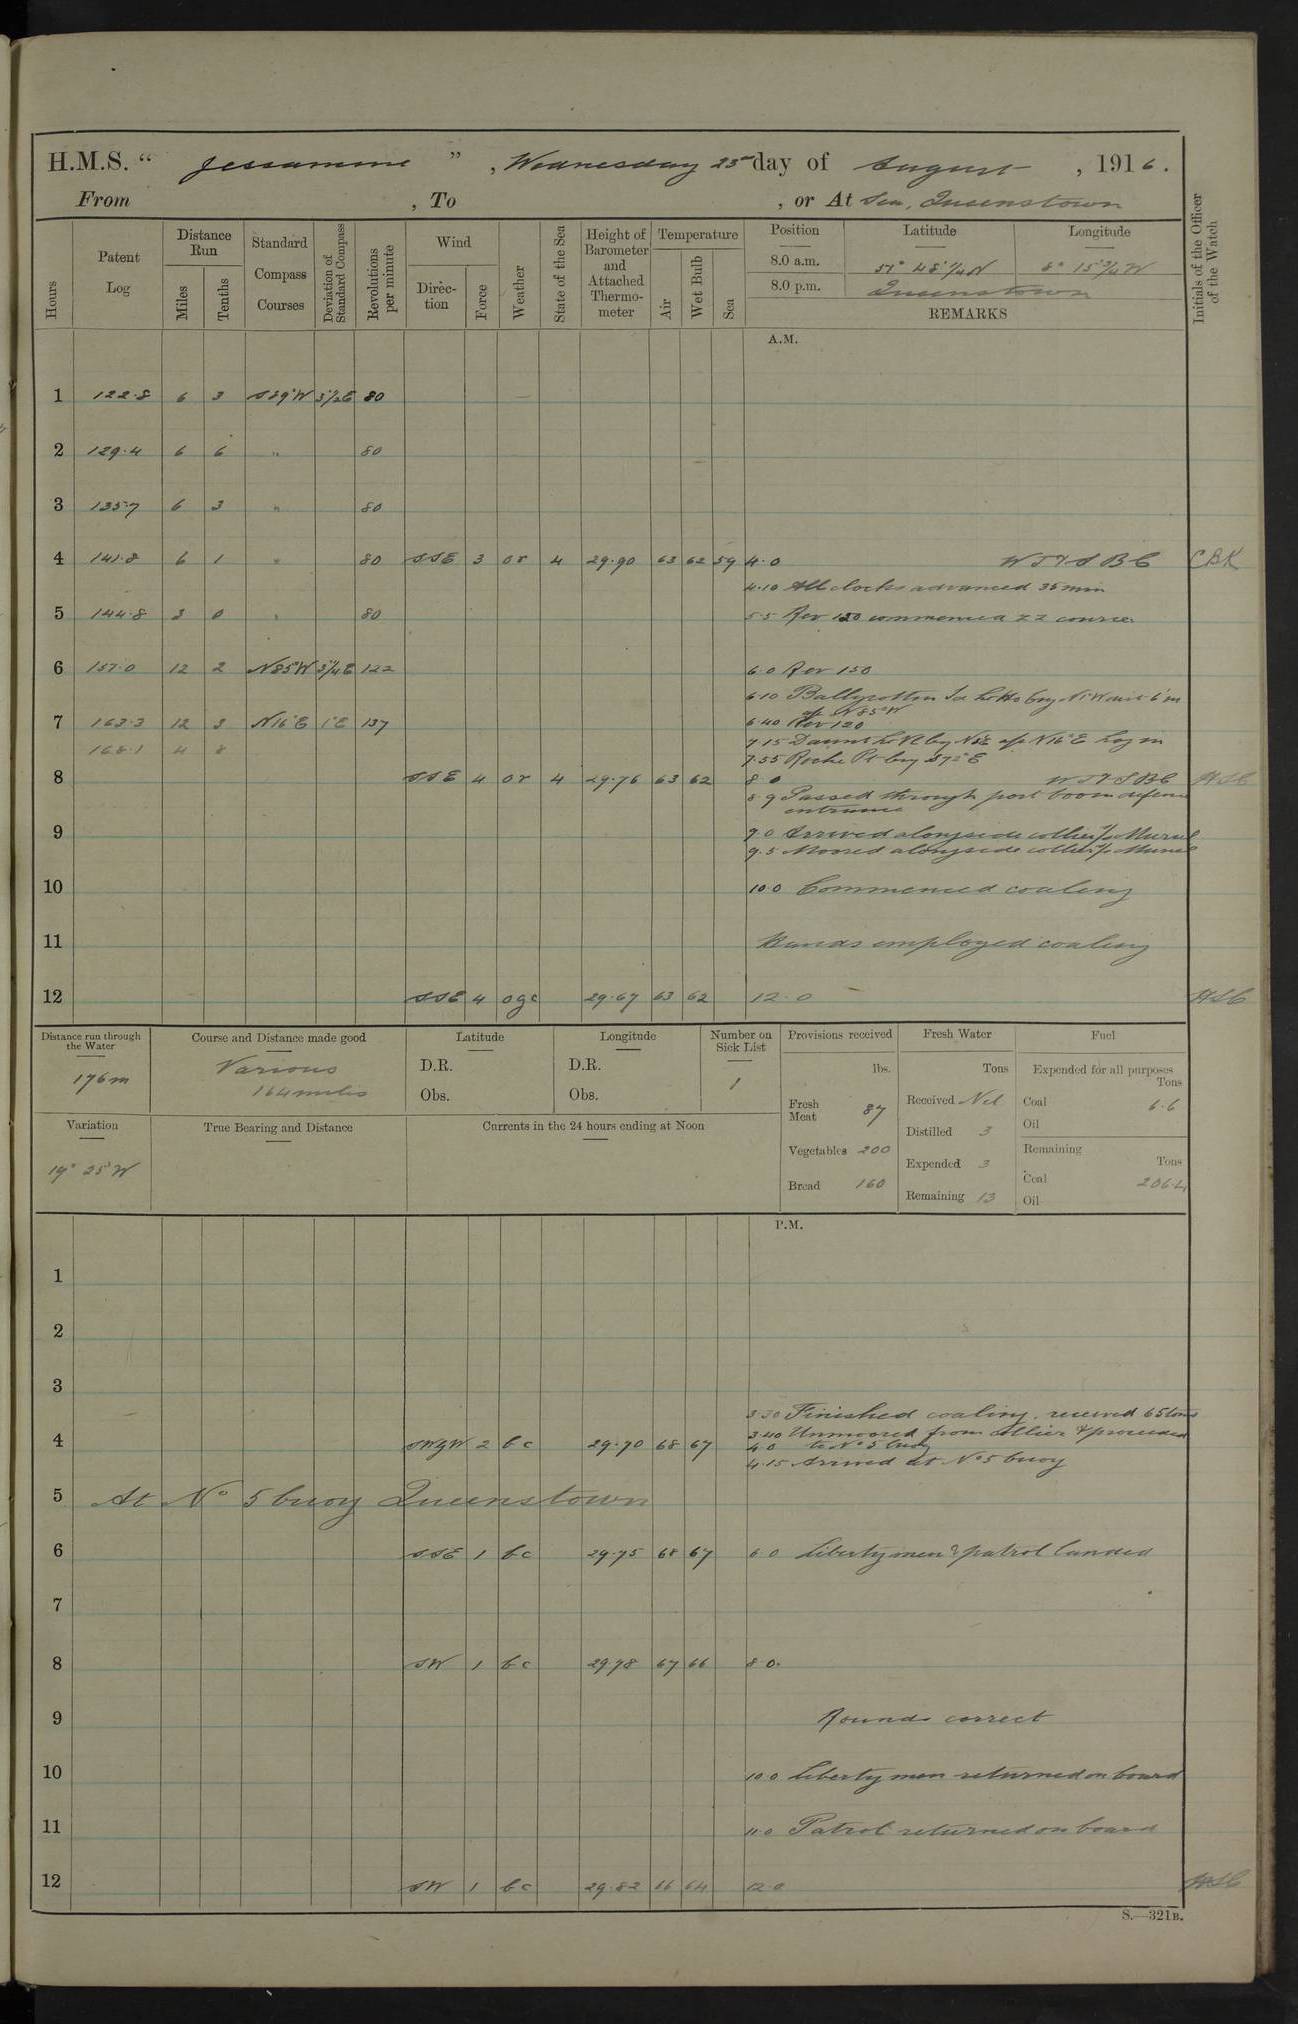 H.M.S. " Jessamine ", Wednesday 23rd day of August, 1916.
From , To , or At Sea, Queenstown
Hours
Patent Log
Distance Run
Miles
Tenths
Standard Compass Courses
Deviation of Standard Compass
Revolutions per minute
Wind
Direction
Force
Weather
State of the Sea
Height of Barometer and Attached Thermometer
Temperature
Air
Wet Bulb
Sea
Position Latitude Longitude
8.0 a.m. 51° 48 1/4 N 6° 15 3/4 W
8.0 p.m. Queenstown
REMARKS
Initials of the Officer of the Watch
A.M.
1 122.8 6 3 S89°W 3 1/2 E 80
2 129.4 6 6 " 80
3 135.7 6 3 " 80
4 141.8 6 1 " 80 SSE 3 or 4 29.90 63 62 59 4.0 CBK
4.10 All clocks advanced 35 min
5 144.8 3 0 " 80 5.5 Rev 120 commenced ZZ course.
6 157.0 12 2 N85W 3 1/4 E 122 6.0 Rev 150
6.10 Ballycotton
a/c N85°W
7 163.3 12 3 N16°E 1°E 137 6.40 Rev 120
168.1 4 8 7.15 Daunt a/c N16°E
7.55 Roche Pt brg S72°E
8 SSE 4 or 4 29.76 63 62 8.0
8.9 Passed through port boom defence
entrance
9 9.0 Arrived alongside collier
9.5 Moored alongside collier
10 10.0 Commenced coaling
11 Hands employed coaling
12 SSE 4 ogc 29.67 63 62 12.0
Distance run through the Water
176m
Course and Distance made good
Various
164 miles
Latitude
D.R.
Obs.
Longitude
D.R.
Obs.
Number on Sick List
1
Provisions received
lbs.
Fresh Meat 87
Vegetables 200
Bread 160
Fresh Water
Tons
Received Nil
Distilled 3
Expended 3
Remaining 13
Fuel
Expended for all purposes
Tons
Coal 6.6
Oil
Remaining
Tons
Coal 206.4
Oil
Variation
19° 25' W
True Bearing and Distance
Currents in the 24 hours ending at Noon
P.M.
1
2
3
3.30 Finished coaling, received 65 tons
3.40 Unmoored from collier & proceeded
4 SWgW 2 bc 29.70 68 67 4.0 to No 5 buoy
4.15 Arrived at No 5 buoy
5 At No 5 buoy Queenstown
6 SSE 1 bc 29.75 68 67 6.0 Libertymen & patrol landed
7
8 SW 1 bc 29.78 67 66 8.0.
9 Rounds correct
10 10.0 Liberty men returned on board
11 11.0 Patrol returned on board
12 SW 1 bc 29.82 66 64 12.0
S.—321B.